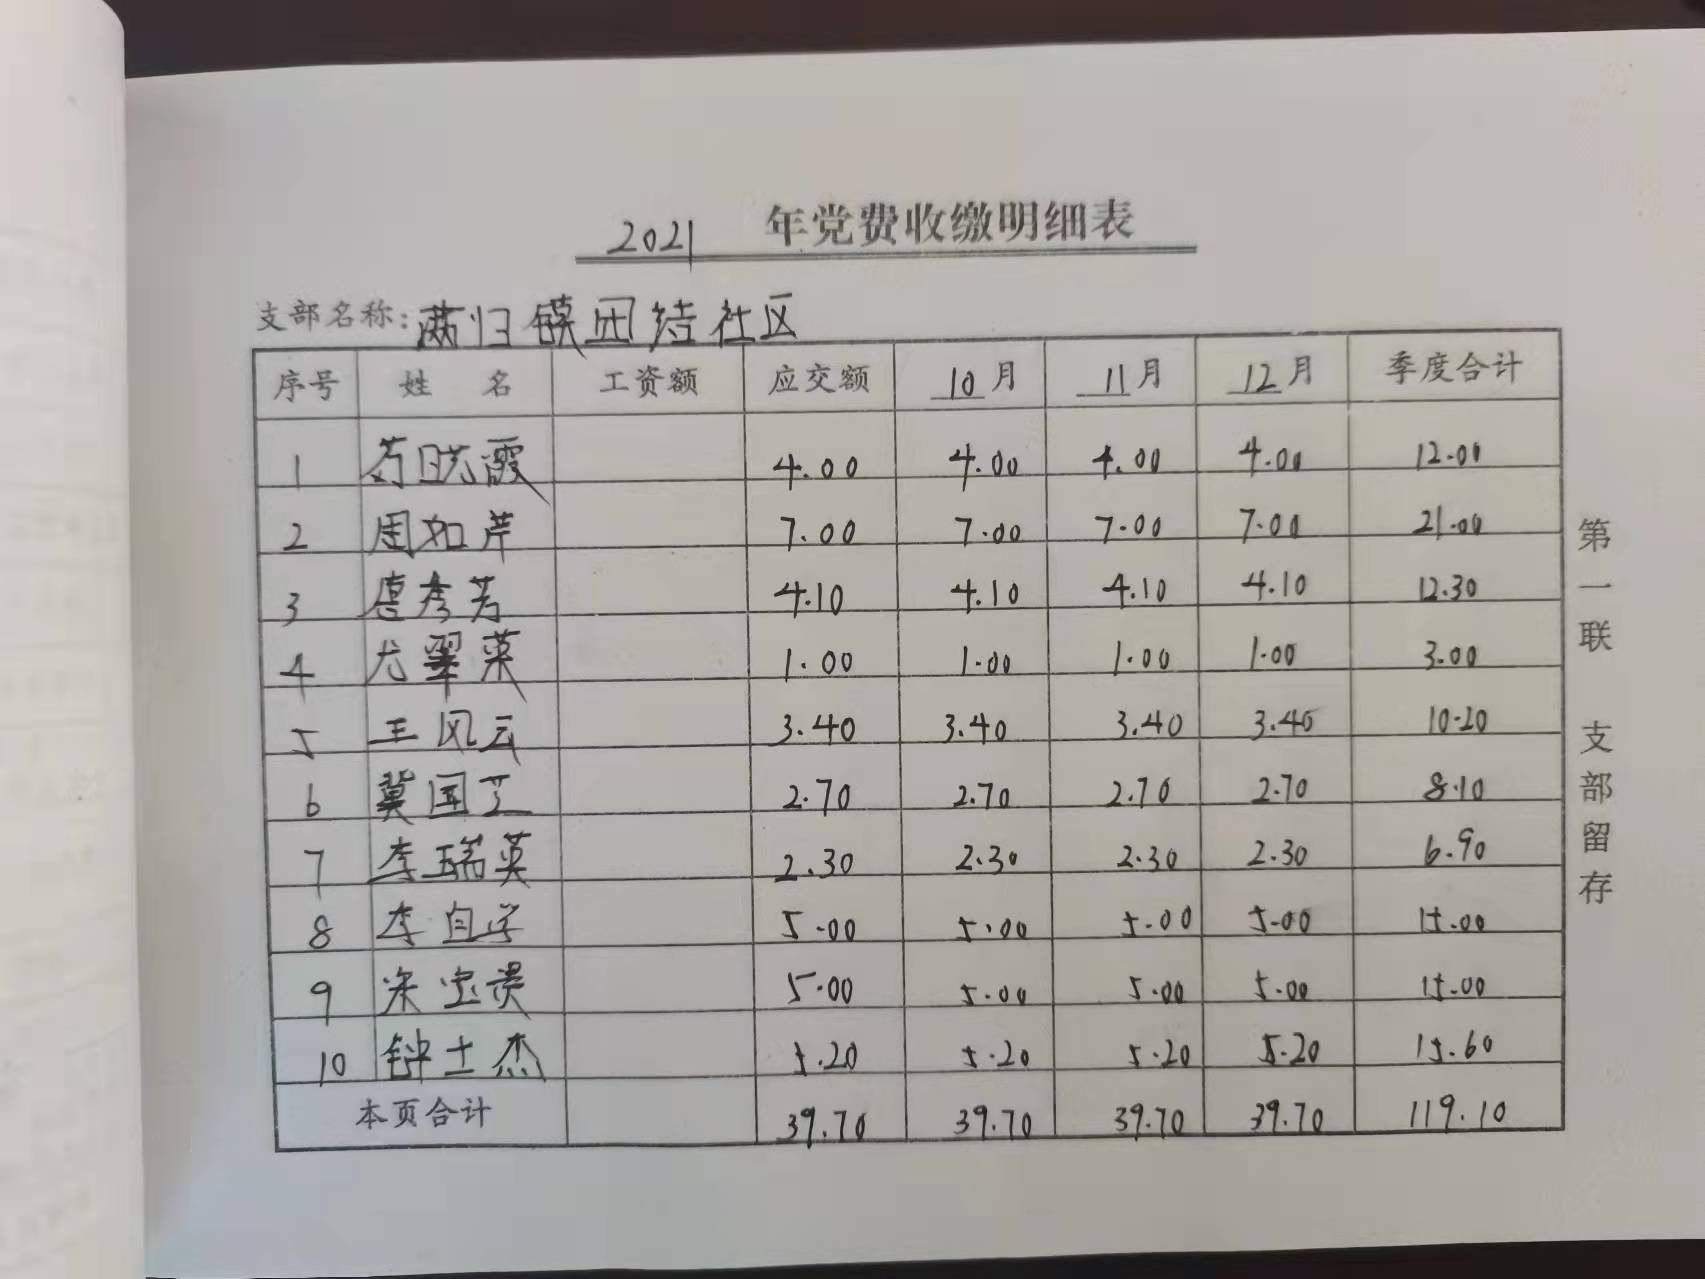 2021 年党费收缴明细表
支部名称:满归镇团结社区
序号 姓名 工资额 应交额 10月 11月 12月 季度合计
1 晓霞 4.00 4.00 4.00 4.00 12.00
2 周如芹 7.00 7.00 7.00 7.00 21.00
3 唐彦芳 4.10 4.10 4.10 4.10 12.30
4 尤翠英 1.00 1.00 1.00 1.00 3.00
5 王风云 3.40 3.40 3.40 3.40 10.20
6 冀国 2.70 2.70 2.70 2.70 8.10
7 李瑞英 2.30 2.30 2.30 2.30 6.90
8 李自学 5.00 5.00 5.00 5.00 15.00
9 宋宝贵 5.00 5.00 5.00 5.00 15.00
10 钟士杰 5.20 5.20 5.20 5.20 15.60
本页合计 39.70 39.70 39.70 39.70 119.10
第一联 支部留存